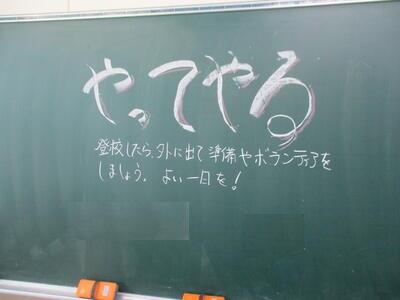 やってやる
登校したら、外に出て準備やボランティアを
しましょう。よい一日を！